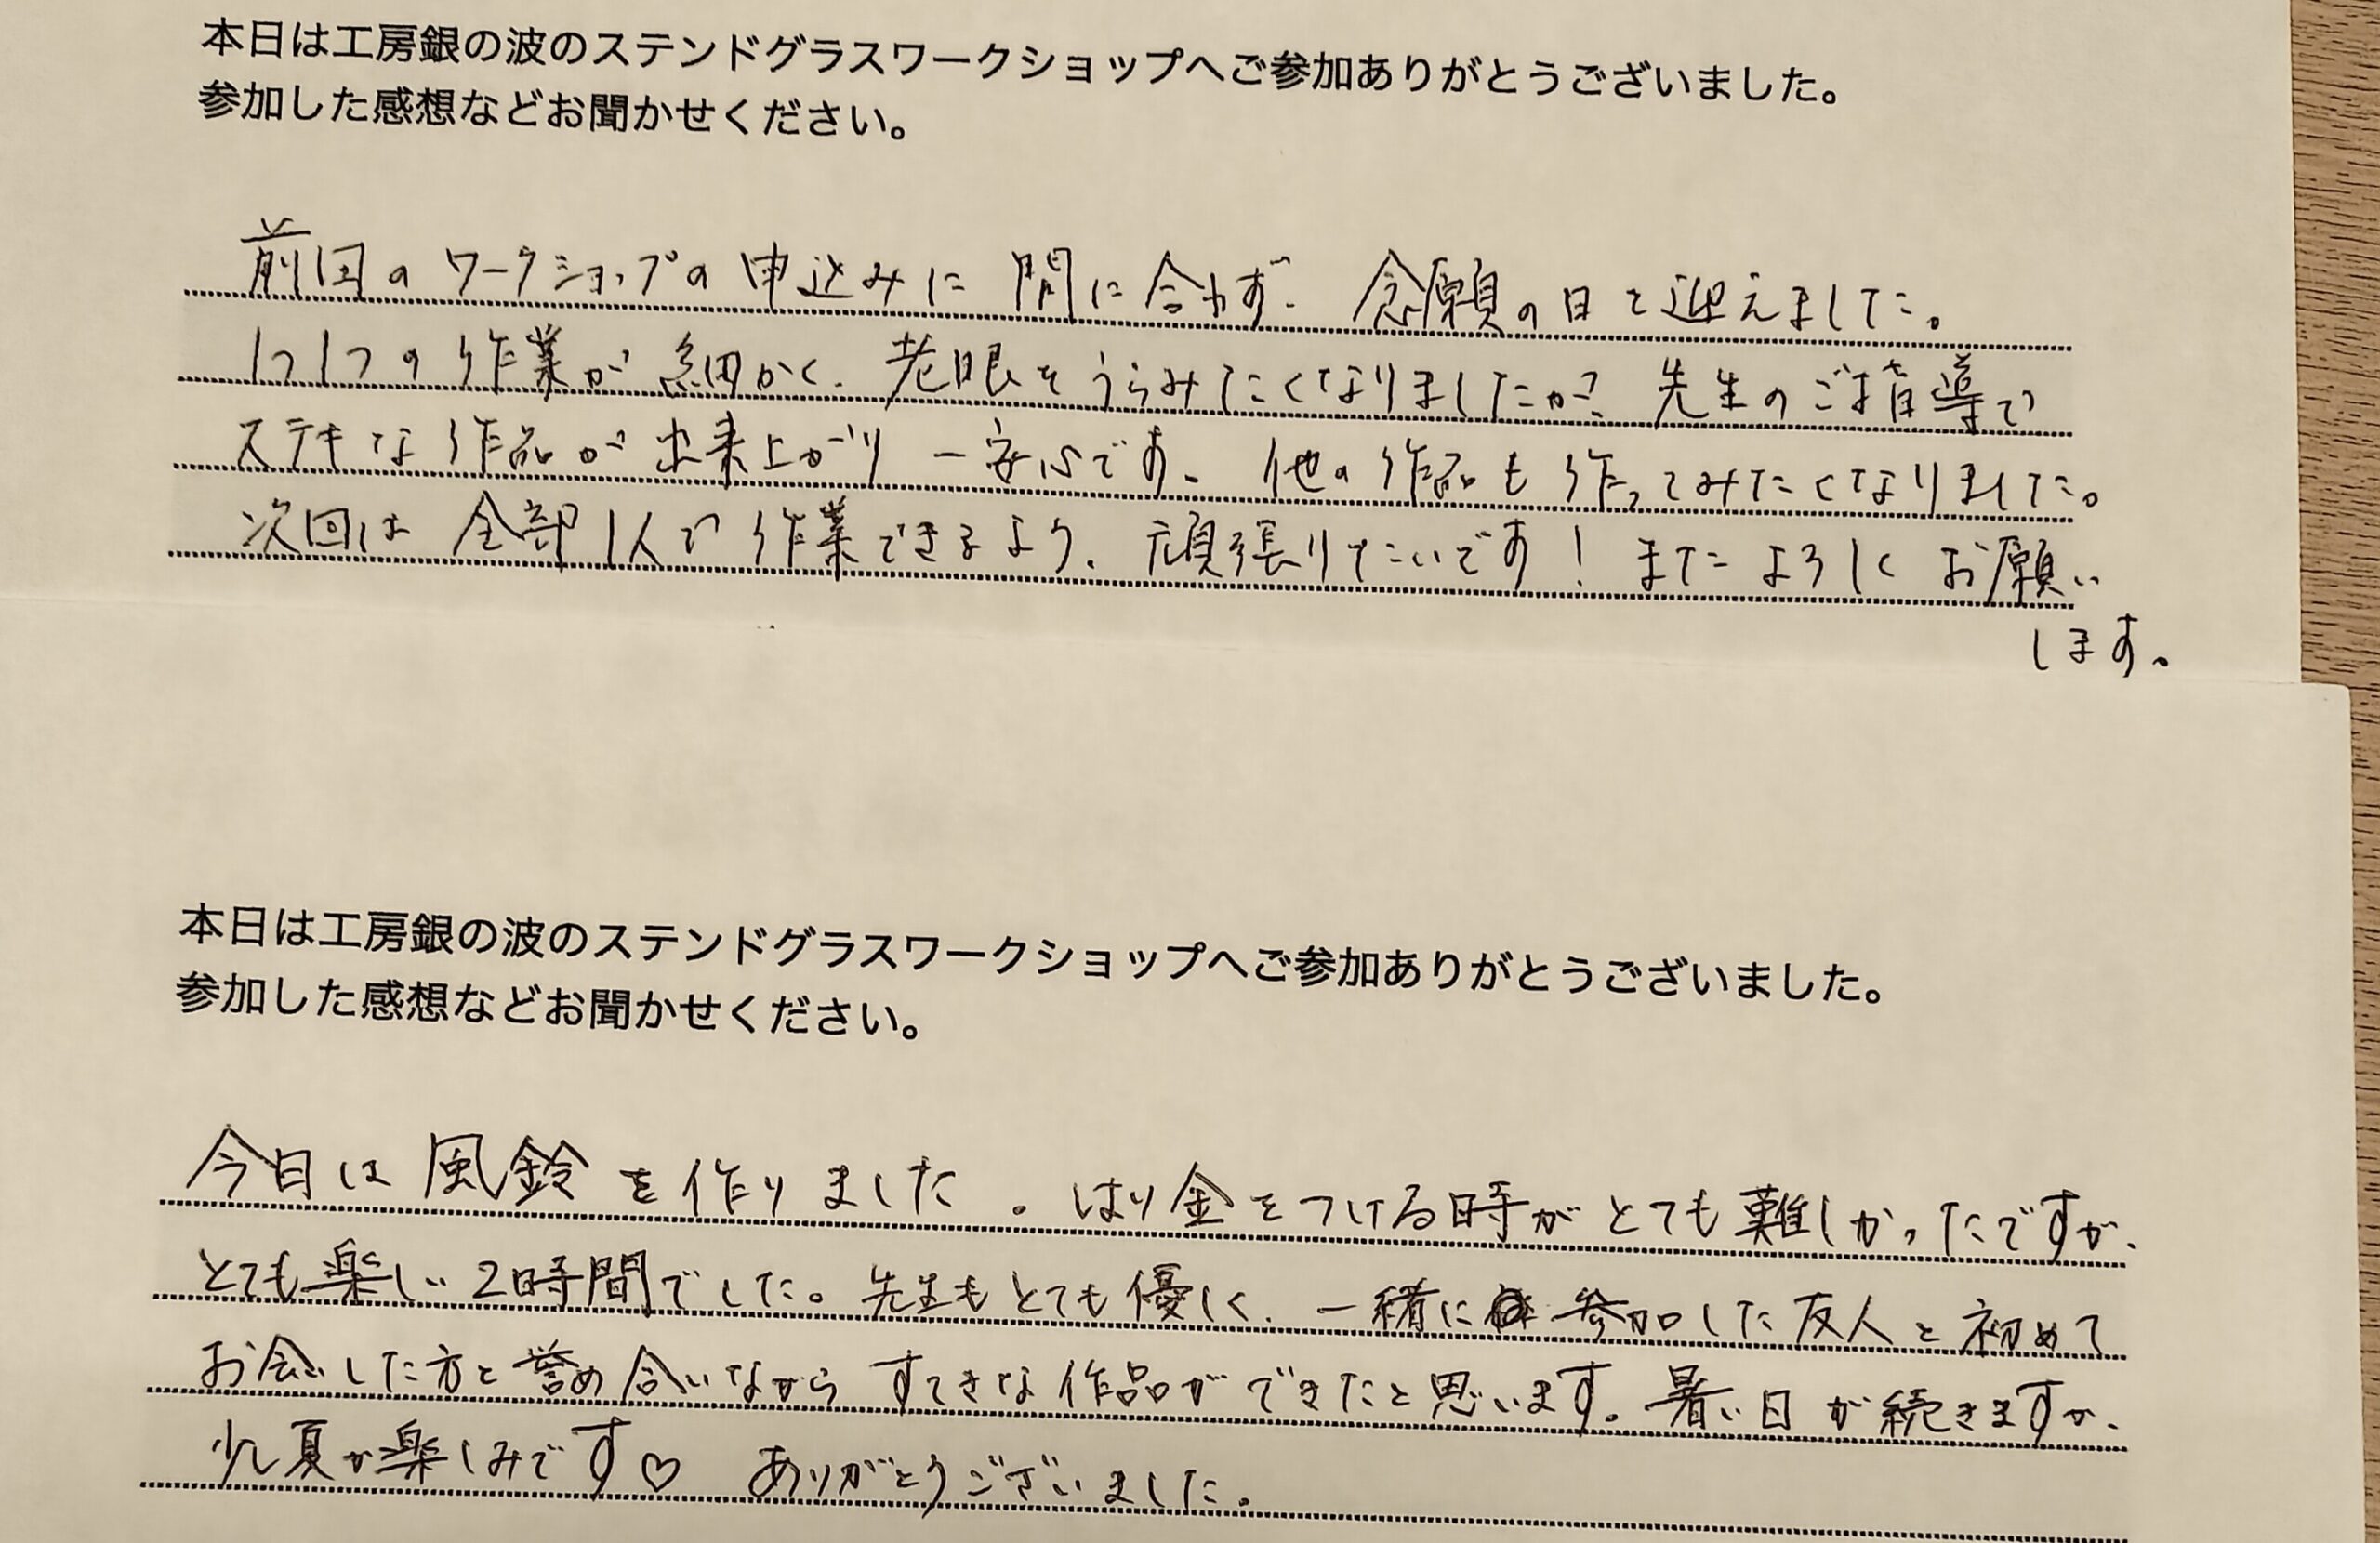 本日は工房銀の波のステンドグラスワークショップへご参加ありがとうございました。
参加した感想などお聞かせください。
前回のワークショップの申込みに間に合わず、念願の日を迎えました。
1つ1つの作業が細かく、老眼をうらみたくなりましたが、先生のご指導で
ステキな作品が出来上がり一安心です。他の作品も作ってみたくなりました。
次回は全部1人で作業できるよう、頑張りたいです！またよろしくお願い
します。
本日は工房銀の波のステンドグラスワークショップへご参加ありがとうございました。
参加した感想などお聞かせください。
今日は風鈴を作りました。はり金をつける時がとても難しかったですが、
とても楽しい2時間でした。先生もとても優しく、一緒に参加した友人と初めて
お会いした方と誉め合いながらすてきな作品ができたと思います。暑い日が続きますが、
少し夏が楽しみです♡ ありがとうございました。